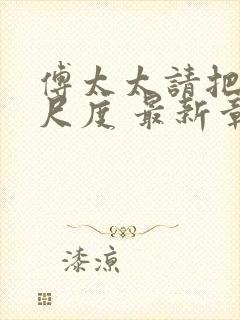 傅太太請把
尺度 最新章
漆涼